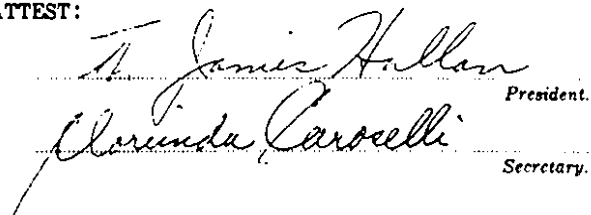 ATTEST:
H. James Hallan
President.
Clorinda Caroselli
Secretary.